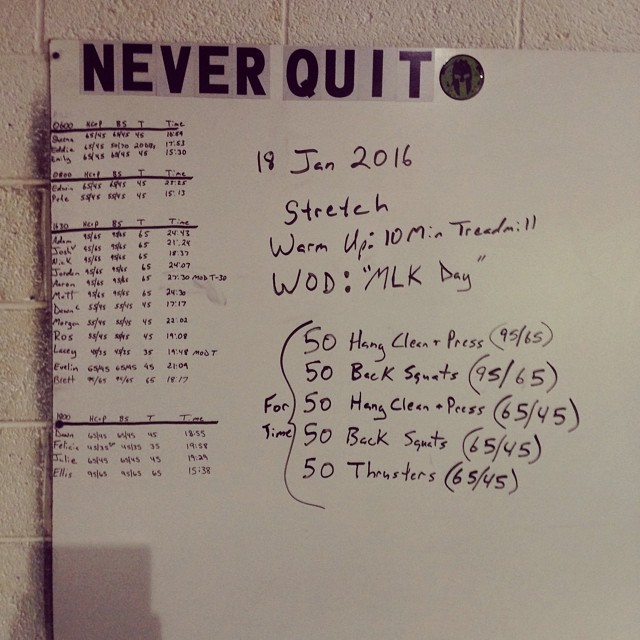 NEVER QUIT
0600 HC+P BS T Time
65/45 65/45 45 18:59
Eddie 65/45 50/70 17:53
Emily 65/45 65/45 45 15:30
0800 HC+P BS T Time
Edwin 65/45 65/45 45
Pete 55/45 55/45 45 15:13
1630 HC+P BS T Time
Adam 95/65 95/65 65 24:43
Josh 95/65 95/65 65 21:24
Nick 95/65 95/65 65 18:37
Jordan 95/65 95/65 65 24:07
Aaron 95/65 95/65 65 27:30 MOD T-30
Matt 95/65 95/65 65 24:30
Dawn C 55/45 55/45 45 17:17
Morgan 55/45 55/45 45 22:02
Ros 55/45 55/45 45 19:08
Lacey 40/35 45/35 35 19:48 MOD T
Evelin 65/45 65/45 45 21:09
Brett 95/65 95/65 65 18:17
1800 HC+P BS T Time
Dawn 65/45 65/45 45 18:55
Felicia 45/35 45/35 35 19:58
Julie 65/45 65/45 45 19:29
Ellis 95/65 95/65 65 15:38
18 Jan 2016
Stretch
Warm Up: 10 Min Treadmill
WOD: "MLK Day"
For Time
50 Hang Clean + Press (95/65)
50 Back Squats (95/65)
50 Hang Clean + Press (65/45)
50 Back Squats (65/45)
50 Thrusters (65/45)